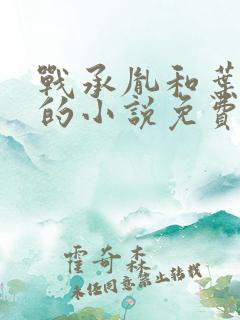 戰承胤和葉
的小說免費
霍奇森
未经同意禁止转载